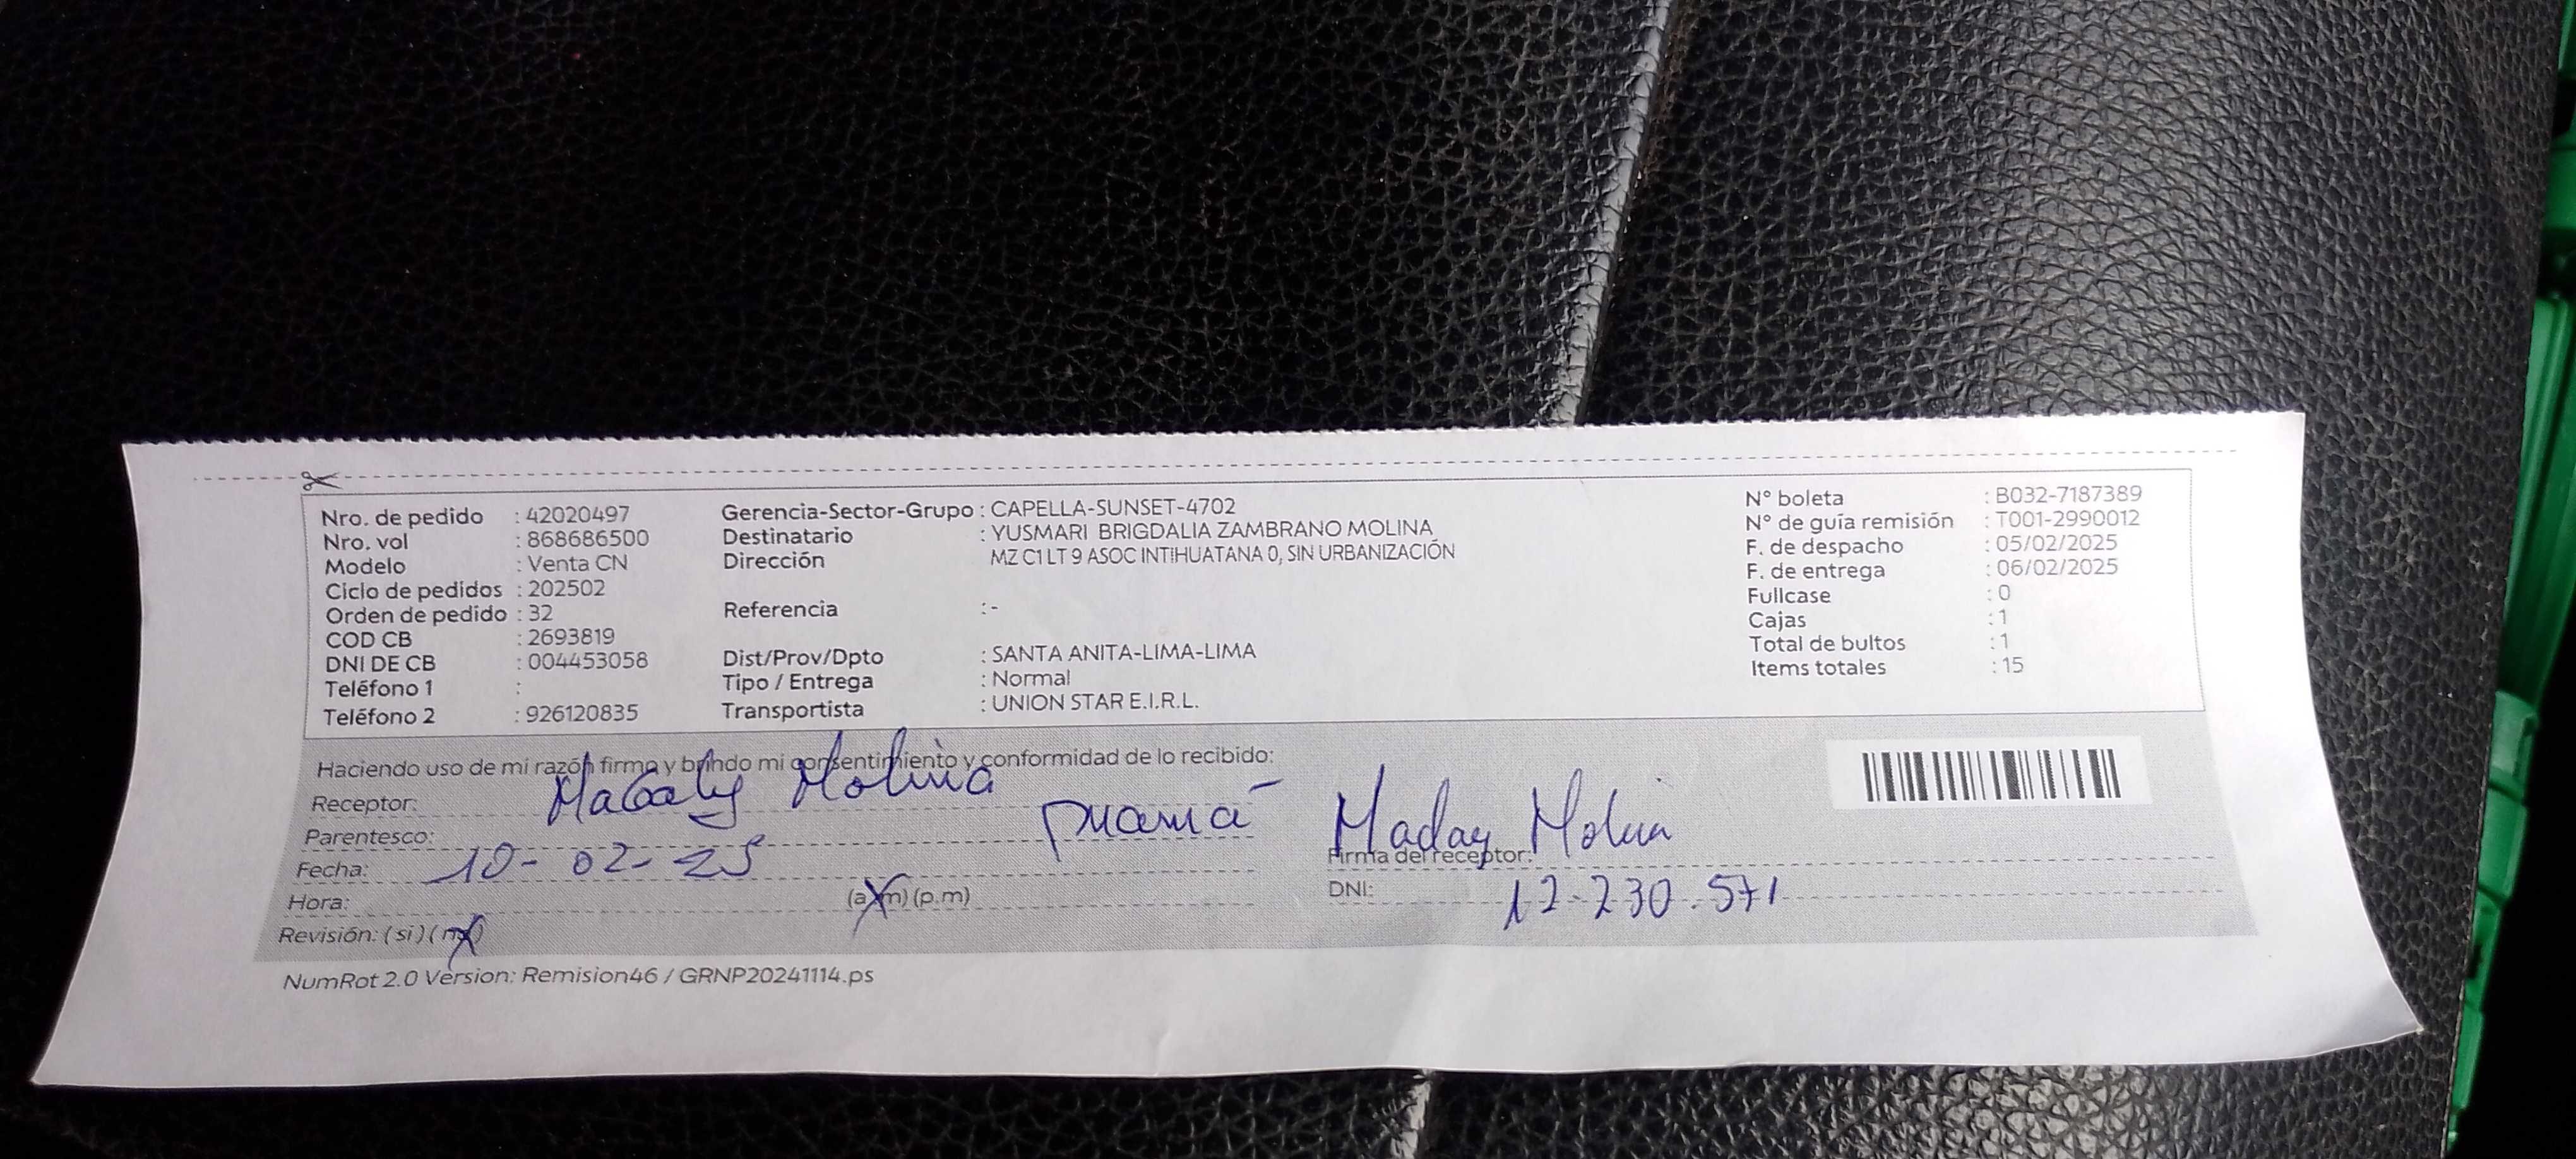 Nro. de pedido : 42020497 Gerencia-Sector-Grupo : CAPELLA-SUNSET-4702 N° boleta : B032-7187389
Nro. vol : 868686500 Destinatario : YUSMARI BRIGDALIA ZAMBRANO MOLINA N° de guía remisión : T001-2990012
Modelo : Venta CN Dirección MZ C1 LT 9 ASOC INTIHUATANA 0, SIN URBANIZACIÓN F. de despacho : 05/02/2025
Ciclo de pedidos : 202502 F. de entrega : 06/02/2025
Orden de pedido : 32 Referencia : - Fullcase : 0
COD CB : 2693819 Cajas : 1
DNI DE CB : 004453058 Dist/Prov/Dpto : SANTA ANITA-LIMA-LIMA Total de bultos : 1
Teléfono 1 : Tipo / Entrega : Normal Items totales : 15
Teléfono 2 : 926120835 Transportista : UNION STAR E.I.R.L.
Haciendo uso de mi razón firmo y brindo mi consentimiento y conformidad de lo recibido:
Receptor: Magaly Molina
Parentesco: mamá
Fecha: 10-02-25 Firma del receptor: Molina
Hora: (a.m) (p.m) DNI: 12.230.571
Revisión: (si) (no)
NumRot 2.0 Version: Remision46 / GRNP20241114.ps